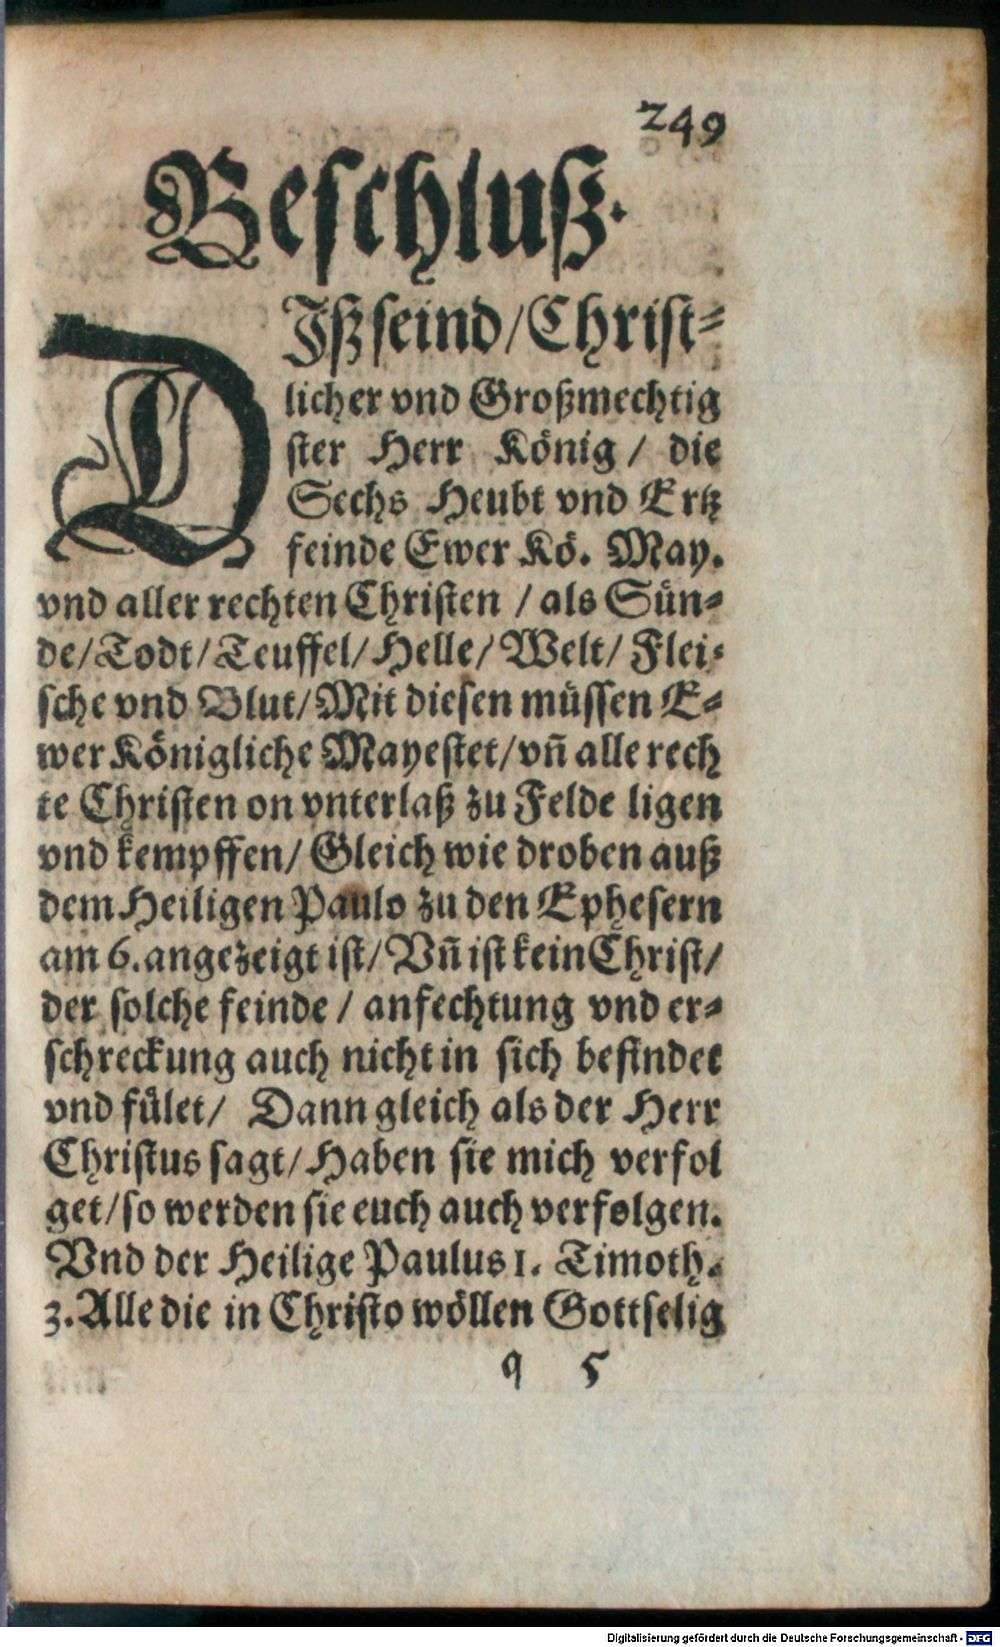 249
Beschluß.
DIß seind/Christ⸗
licher vnd Großmechtig
ster Herr König/ die
Sechs Heubt vnd Ertz
feinde Ewer Kö. May.
vnd aller rechten Christen /als Sün⸗
de/Todt/Teuffel/Helle/Welt/Flei⸗
sche vnd Blut/Mit diesen müssen E⸗
wer Königliche Mayestet/vñ alle rech
te Christen on vnterlaß zu Felde ligen
vnd kempffen/Gleich wie droben auß
dem Heiligen Paulo zu den Ephesern
am 6.angezeigt ist/Vñ ist kein Christ/
der solche feinde/anfechtung vnd er⸗
schreckung auch nicht in sich befindet
vnd fület/ Dann gleich als der Herr
Christus sagt/Haben sie mich verfol
get/so werden sie euch auch verfolgen.
Vnd der Heilige Paulus 1. Timoth.
3.Alle die in Christo wöllen Gottselig
q 5
Digitalisierung gefördert durch die Deutsche Forschungsgemeinschaft - DFG